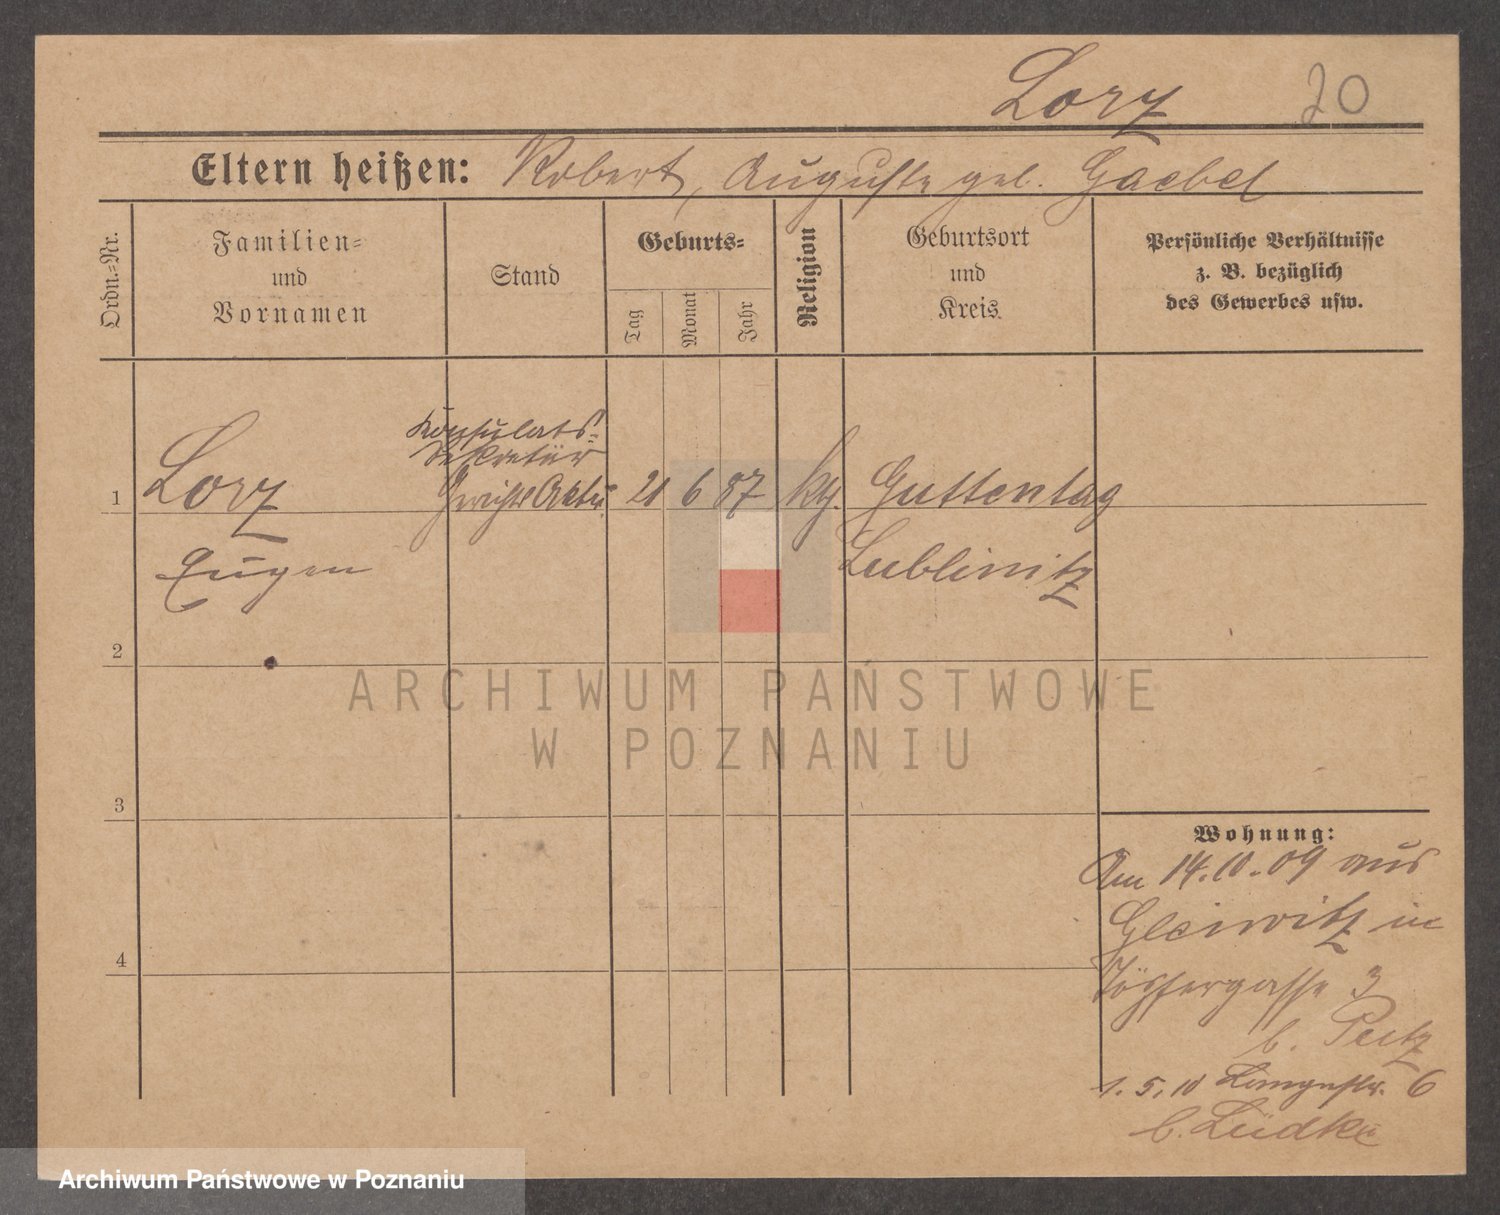 Lorz 20
Eltern heißen: Robert, Auguste geb. Gaebel
Ordn.-Nr.
Familien-
und
Vornamen
Stand
Geburts-
Tag
Monat
Jahr
Religion
Geburtsort
und
Kreis
Persönliche Verhältnisse
z. B. bezüglich
des Gewerbes usw.
Konsulats-
Sekretär
1 Lorz Gerichts Aktu. 21 6 87 kth. Guttentag
Eugen Lublinitz
2
ARCHIWUM PAŃSTWOWE
W POZNANIU
3
Wohnung:
Am 14.10.09 aus
Gleiwitz in
4
Töpfergasse 3
b. Peitz
1.5.10 Langestr. 6
b. Lüdke
Archiwum Państwowe w Poznaniu